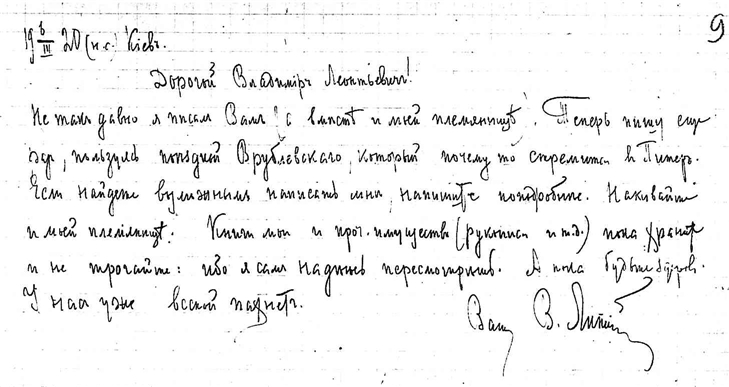 9
19 6/III 20 (н.с.) Кіевъ.
Дорогой Владиміръ Леонтьевичъ!
Не такъ давно я писалъ Вамъ, а вмѣстѣ и моей племянницѣ. Теперь пишу еще
разъ, пользуясь поѣздкой Врублевскаго, который почему то стремится въ Питеръ.
Если найдете возможнымъ написать мнѣ, напишите поподробнѣе.
и моей племянницѣ. Книги мои и проч. имущество (рукописи и т.д.) пока храните
и не трогайте: ибо я самъ надѣюсь пересмотрѣть. А пока будьте здоровы.
У насъ уже весной пахнетъ.
Вашъ В. Липскій